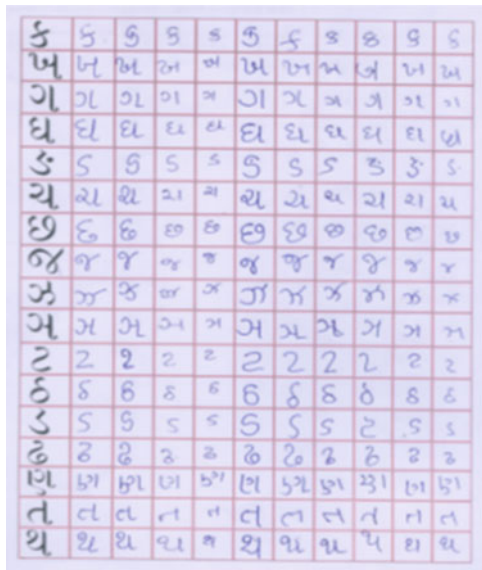 ક ક ક ક ક ક ક ક ક ક ક
ખ ખ ખ ખ ખ ખ ખ ખ ખ ખ ખ
ગ ગ ગ ગ ગ ગ ગ ગ ગ ગ ગ
ઘ ઘ ઘ ઘ ઘ ઘ ઘ ઘ ઘ ઘ ઘ
ઙ ઙ ઙ ઙ ઙ ઙ ઙ ઙ ઙ ઙ ઙ
ચ ચ ચ ચ ચ ચ ચ ચ ચ ચ ચ
છ છ છ છ છ છ છ છ છ છ છ
જ જ જ જ જ જ જ જ જ જ જ
ઝ ઝ ઝ ઝ ઝ ઝ ઝ ઝ ઝ ઝ ઝ
ઞ ઞ ઞ ઞ ઞ ઞ ઞ ઞ ઞ ઞ ઞ
ટ ટ ટ ટ ટ ટ ટ ટ ટ ટ ટ
ઠ ઠ ઠ ઠ ઠ ઠ ઠ ઠ ઠ ઠ ઠ
ડ ડ ડ ડ ડ ડ ડ ડ ડ ડ ડ
ઢ ઢ ઢ ઢ ઢ ઢ ઢ ઢ ઢ ઢ ઢ
ણ ણ ણ ણ ણ ણ ણ ણ ણ ણ ણ
ત ત ત ત ત ત ત ત ત ત ત
થ થ થ થ થ થ થ થ થ થ થ